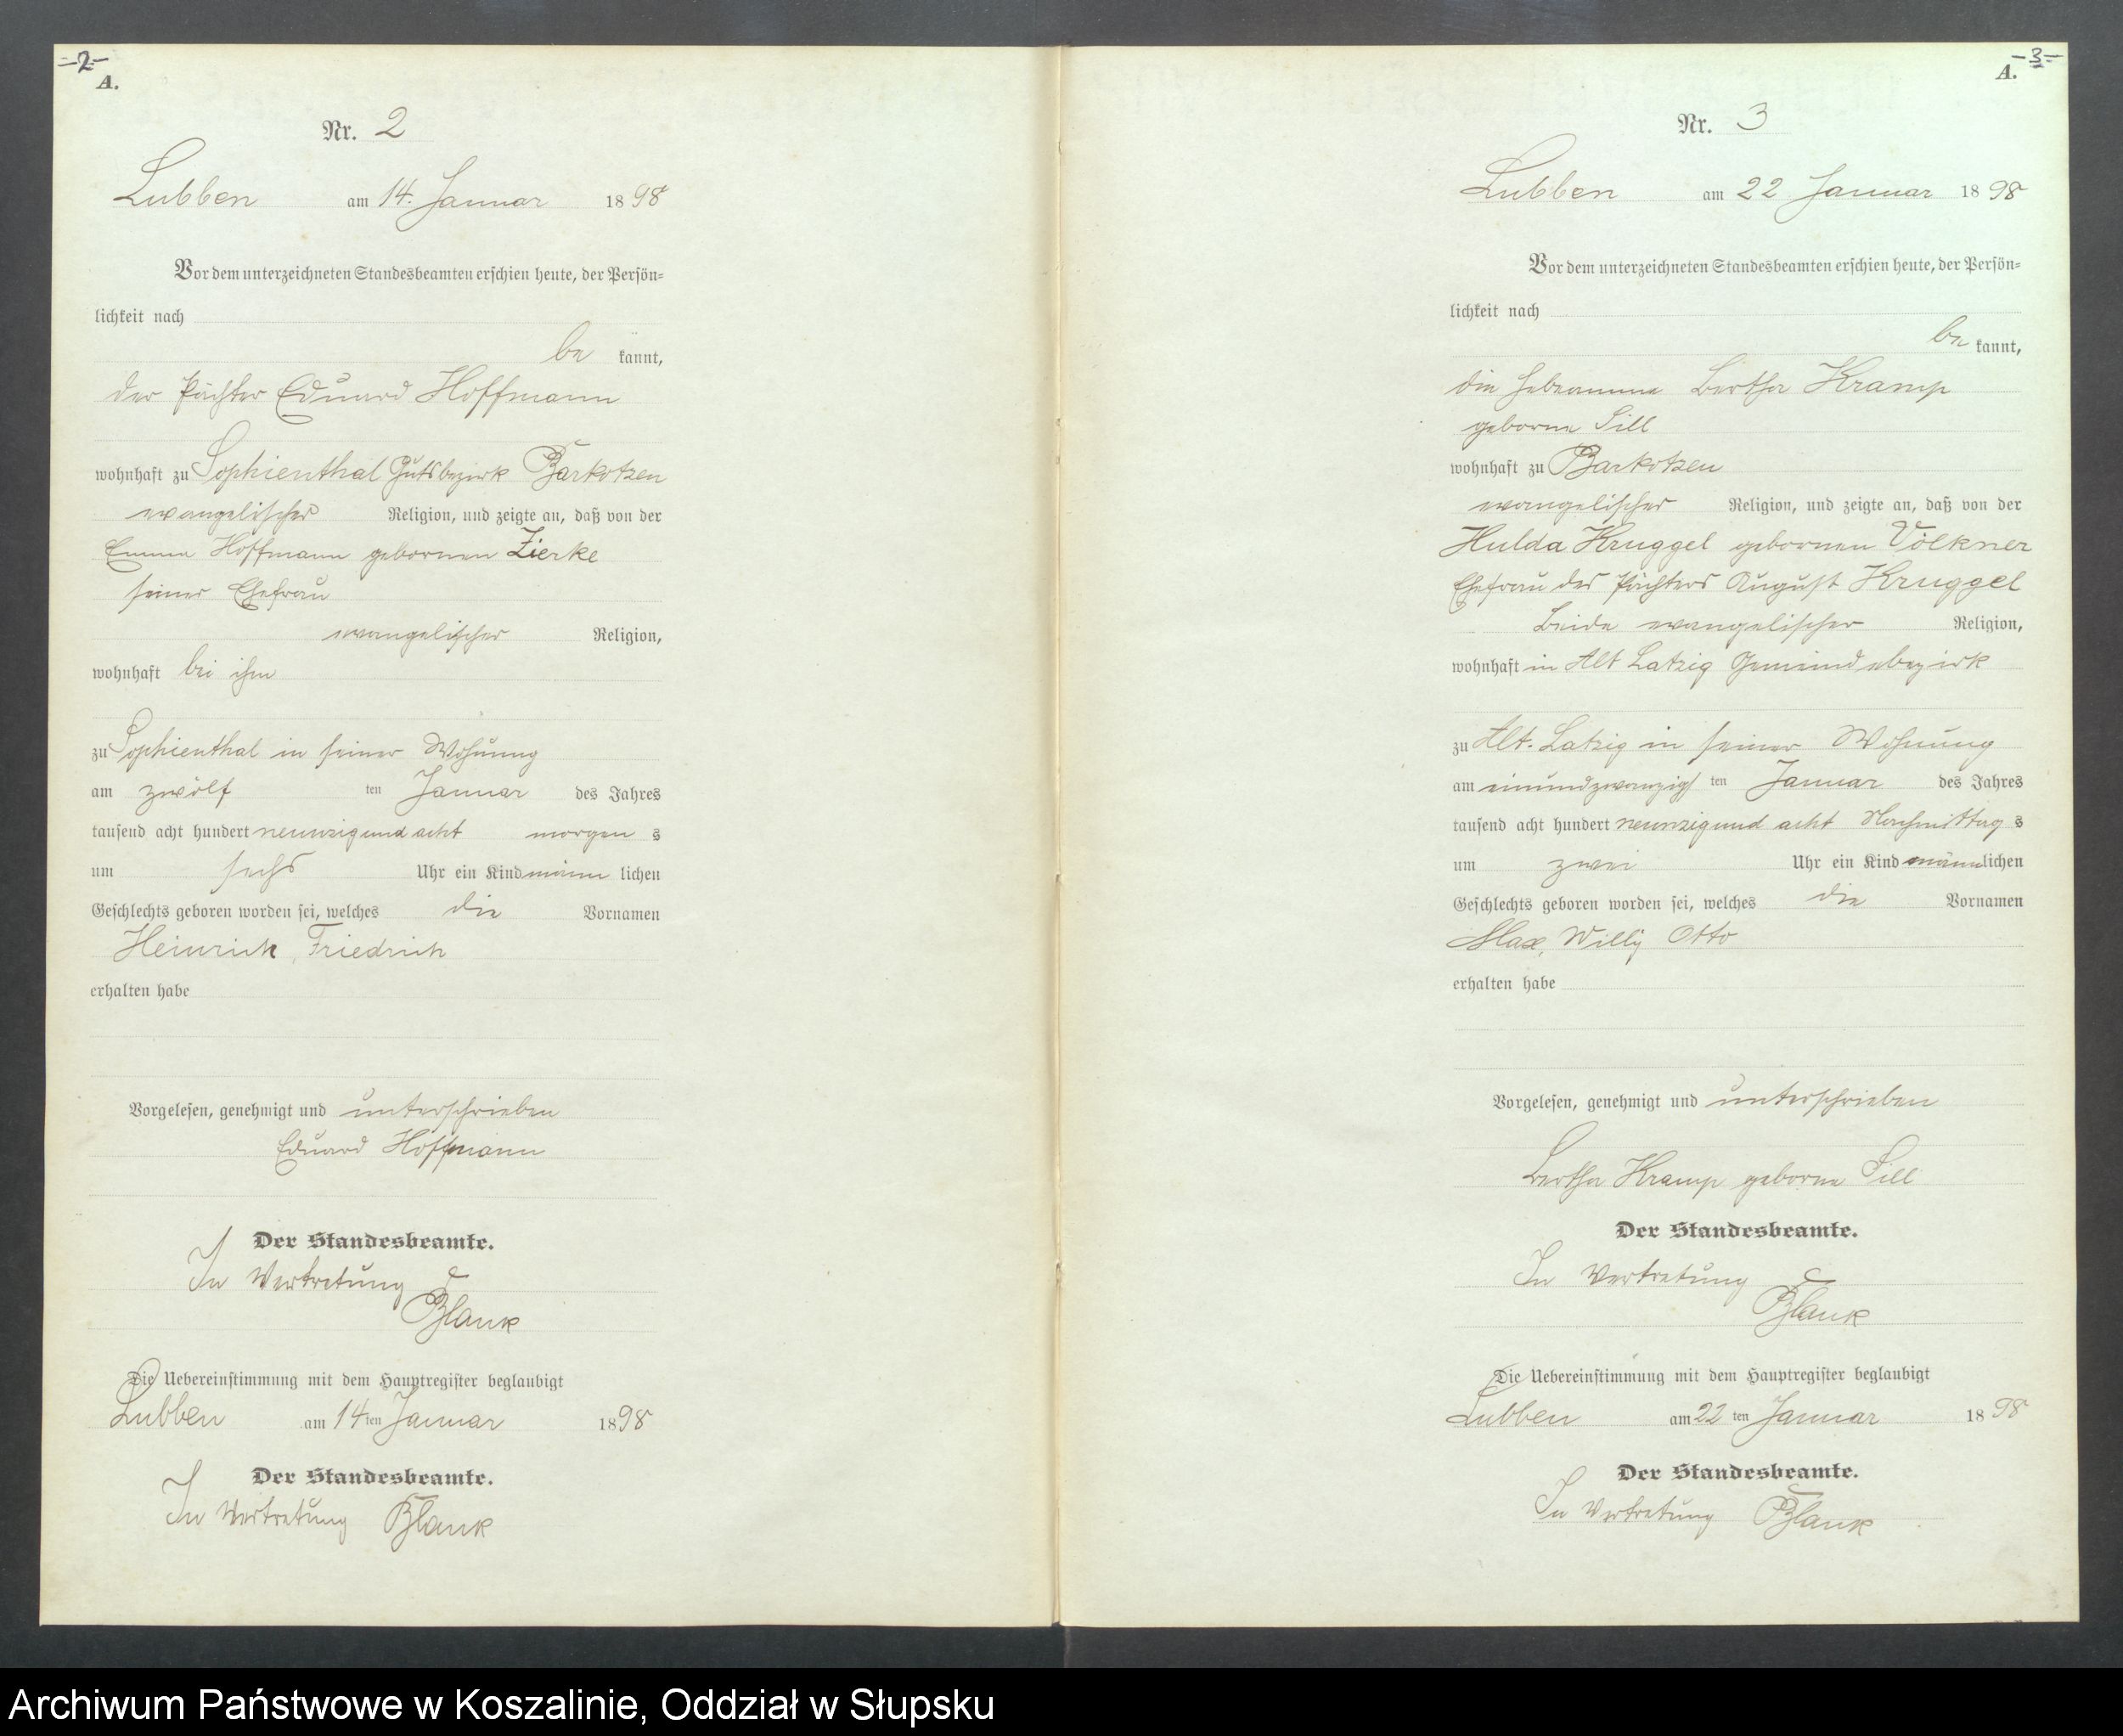 -2-
A.
Nr. 2
Lubben am 14. Januar 1898
Vor dem unterzeichneten Standesbeamten erschien heute, der Persön-
lichkeit nach
be kannt,
der Pächter Eduard Hoffmann
wohnhaft zu Sophienthal Gutsbezirk Barkotzen
evangelischer Religion, und zeigte an, daß von der
Emma Hoffmann gebornen Zierke
seiner Ehefrau
evangelischer Religion,
wohnhaft bei ihm
zu Sophienthal in seiner Wohnung
am zwölf ten Januar des Jahres
tausend acht hundert neunzig und acht morgen s
um sechs Uhr ein Kind männ lichen
Geschlechts geboren worden sei, welches die Vornamen
Heinrich, Friedrich
erhalten habe
Vorgelesen, genehmigt und unterschrieben
Eduard Hoffmann
Der Standesbeamte.
In Vertretung
Blank
Die Uebereinstimmung mit dem Hauptregister beglaubigt
Lubben am 14 ten Januar 1898
Der Standesbeamte.
In Vertretung Blank
-3-
A.
Nr. 3
Lubben am 22 Januar 1898
Vor dem unterzeichneten Standesbeamten erschien heute, der Persön-
lichkeit nach
be kannt,
die Hebeamme Bertha Kramp
geborne Sill
wohnhaft zu Barkotzen
evangelischer Religion, und zeigte an, daß von der
Hulda Kruggel gebornen Völkner
Ehefrau des Pächters August Kruggel
beide evangelischer Religion,
wohnhaft in Alt Latzig Gemeindebezirk
zu Alt-Latzig in seiner Wohnung
am einundzwanzigs ten Januar des Jahres
tausend acht hundert neunzig und acht Nachmittag s
um zwei Uhr ein Kind männlichen
Geschlechts geboren worden sei, welches die Vornamen
Max, Willy Otto
erhalten habe
Vorgelesen, genehmigt und unterschrieben
Bertha Kramp geborne Sill
Der Standesbeamte.
In Vertretung
Blank
Die Uebereinstimmung mit dem Hauptregister beglaubigt
Lubben am 22 ten Januar 1898
Der Standesbeamte.
In Vertretung Blank
Archiwum Państwowe w Koszalinie, Oddział w Słupsku